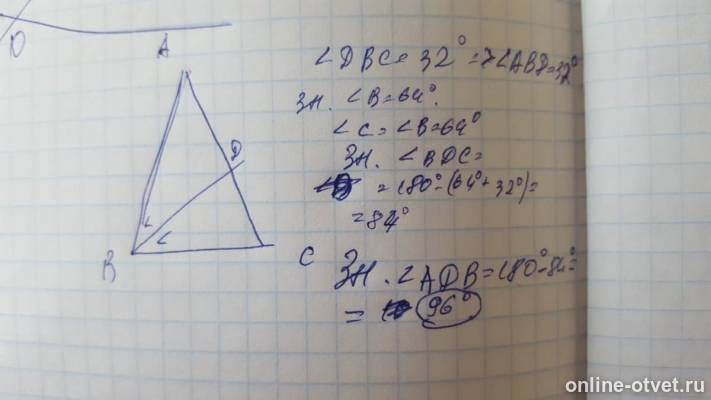 O
A
D
B
C
∠DBC = 32° => ∠ABD = 32°
Зн. ∠B = 64°.
∠C = ∠B = 64°
Зн. ∠BDC =
= 180° - (64° + 32°) =
= 84°
Зн. ∠ADB = 180° - 84° =
= 96°
online-otvet.ru